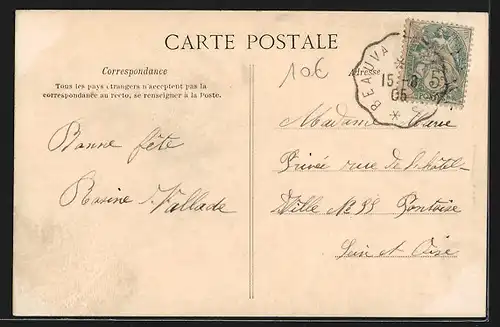 CARTE POSTALE
Correspondance
Tous les pays étrangers n'acceptent pas la
correspondance au recto, se renseigner à la Poste.
Adresse
10€
BEAUVA
15-8
05
5
Bonne fête
Rosine
Madame
Privée rue de l'hôtel-
Ville No 33 Pontoise
Sein et Oise